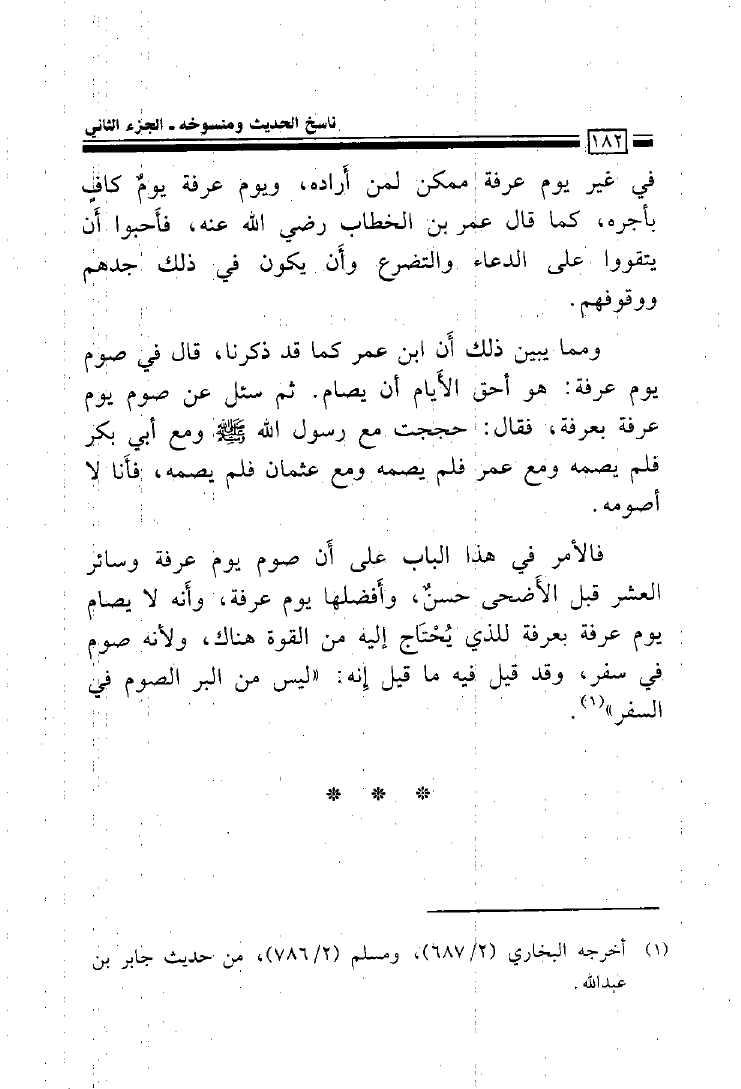 ناسخ الحديث ومنسوخه - الجزء الثاني
١٨٢
في غير يوم عرفة ممكن لمن أَراده، ويوم عرفة يومٌ كافٍ
بأجره، كما قال عمر بن الخطاب رضي الله عنه، فأَحبوا أَن
يتقووا على الدعاء والتضرع وأَن يكون في ذلك جدهم
ووقوفهم.
ومما يبين ذلك أَن ابن عمر كما قد ذكرنا، قال في صوم
يوم عرفة: هو أحق الأَيام أن يصام. ثم سئل عن صوم يوم
عرفة بعرفة، فقال: حججت مع رسول الله ﷺ ومع أبي بكر
فلم يصمه ومع عمر فلم يصمه ومع عثمان فلم يصمه، فأَنا لا
أصومه.
فالأمر في هذا الباب على أَن صوم يوم عرفة وسائر
العشر قبل الأَضحى حسنٌ، وأَفضلها يوم عرفة، وأَنه لا يصام
يوم عرفة بعرفة للذي يُحْتَاج إليه من القوة هناك، ولأنه صوم
في سفر، وقد قيل فيه ما قيل إِنه: «ليس من البر الصوم في
السفر»(١).
* * *
(١) أخرجه البخاري (٦٨٧/٢)، ومسلم (٧٨٦/٢)، من حديث جابر بن
عبدالله.